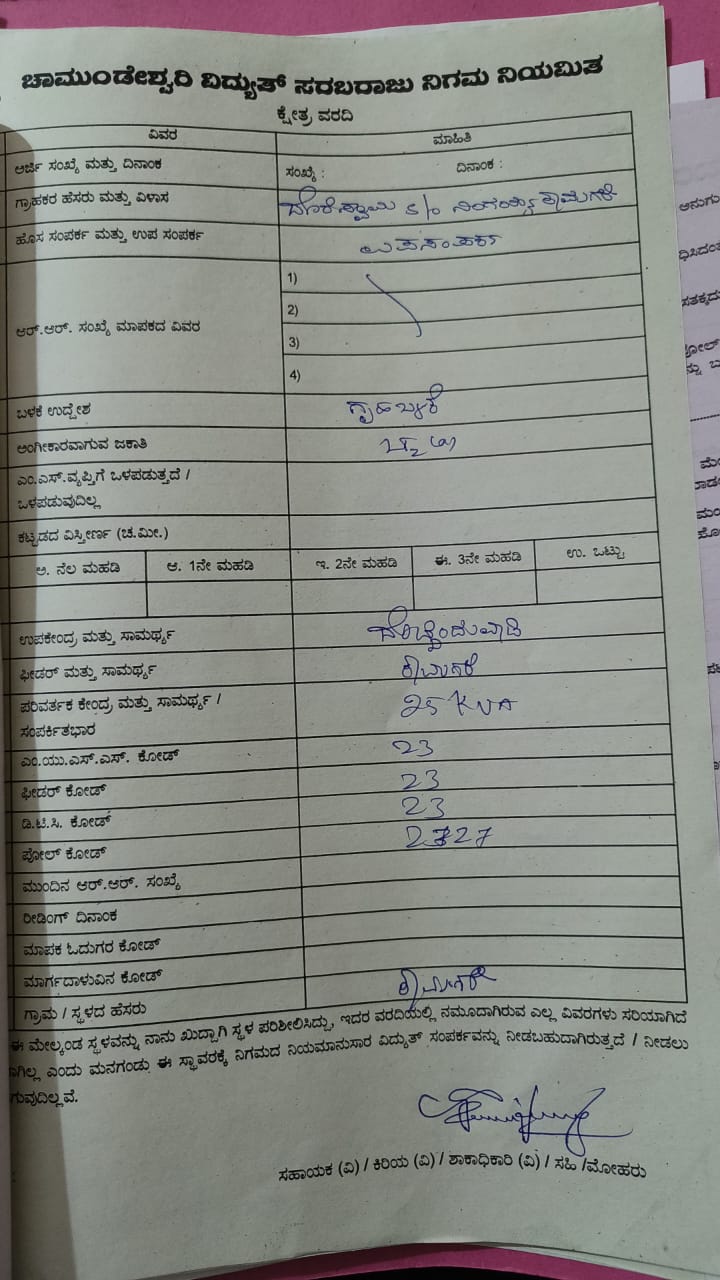 ಚಾಮುಂಡೇಶ್ವರಿ ವಿದ್ಯುತ್ ಸರಬರಾಜು ನಿಗಮ ನಿಯಮಿತ
ಕ್ಷೇತ್ರ ವರದಿ
ವಿವರ ಮಾಹಿತಿ
ಅರ್ಜಿ ಸಂಖ್ಯೆ ಮತ್ತು ದಿನಾಂಕ ಸಂಖ್ಯೆ : ದಿನಾಂಕ :
ಗ್ರಾಹಕರ ಹೆಸರು ಮತ್ತು ವಿಳಾಸ S/o
ಹೊಸ ಸಂಪರ್ಕ ಮತ್ತು ಉಪ ಸಂಪರ್ಕ ಉಪಸಂಪರ್ಕ
ಆರ್.ಆರ್. ಸಂಖ್ಯೆ ಮಾಪಕದ ವಿವರ
1)
2)
3)
4)
ಬಳಕೆ ಉದ್ದೇಶ
ಅಂಗೀಕಾರವಾಗುವ ಜಕಾತಿ
ಎಂ.ಎಸ್.ವ್ಯಪ್ತಿಗೆ ಒಳಪಡುತ್ತದೆ /
ಒಳಪಡುವುದಿಲ್ಲ
ಕಟ್ಟಡದ ವಿಸ್ತೀರ್ಣ (ಚ.ಮೀ.)
ಅ. ನೆಲ ಮಹಡಿ ಆ. 1ನೇ ಮಹಡಿ ಇ. 2ನೇ ಮಹಡಿ ಈ. 3ನೇ ಮಹಡಿ ಉ. ಒಟ್ಟು
ಉಪಕೇಂದ್ರ ಮತ್ತು ಸಾಮರ್ಥ್ಯ
ಫೀಡರ್ ಮತ್ತು ಸಾಮರ್ಥ್ಯ
ಪರಿವರ್ತಕ ಕೇಂದ್ರ ಮತ್ತು ಸಾಮರ್ಥ್ಯ / 25 KVA
ಸಂಪರ್ಕಿತಭಾರ
ಎಂ.ಯು.ಎಸ್.ಎಸ್. ಕೋಡ್ 23
ಫೀಡರ್ ಕೋಡ್ 23
ಡಿ.ಟಿ.ಸಿ. ಕೋಡ್ 23
ಪೋಲ್ ಕೋಡ್
ಮುಂದಿನ ಆರ್.ಆರ್. ಸಂಖ್ಯೆ
ರೀಡಿಂಗ್ ದಿನಾಂಕ
ಮಾಪಕ ಓದುಗರ ಕೋಡ್
ಮಾರ್ಗದಾಳುವಿನ ಕೋಡ್
ಗ್ರಾಮ / ಸ್ಥಳದ ಹೆಸರು
ಈ ಮೇಲ್ಕಂಡ ಸ್ಥಳವನ್ನು ನಾನು ಖುದ್ದಾಗಿ ಸ್ಥಳ ಪರಿಶೀಲಿಸಿದ್ದು, ಇದರ ವರದಿಯಲ್ಲಿ ನಮೂದಾಗಿರುವ ಎಲ್ಲ ವಿವರಗಳು ಸರಿಯಾಗಿದೆ
ಎಂದು ಮನಗಂಡು ಈ ಸ್ಥಾವರಕ್ಕೆ ನಿಗಮದ ನಿಯಮಾನುಸಾರ ವಿದ್ಯುತ್ ಸಂಪರ್ಕವನ್ನು ನೀಡಬಹುದಾಗಿರುತ್ತದೆ / ನೀಡಲು
ಸಹಾಯಕ (ವಿ) / ಕಿರಿಯ (ವಿ) / ಶಾಕಾಧಿಕಾರಿ (ವಿ) / ಸಹಿ /ಮೋಹರು